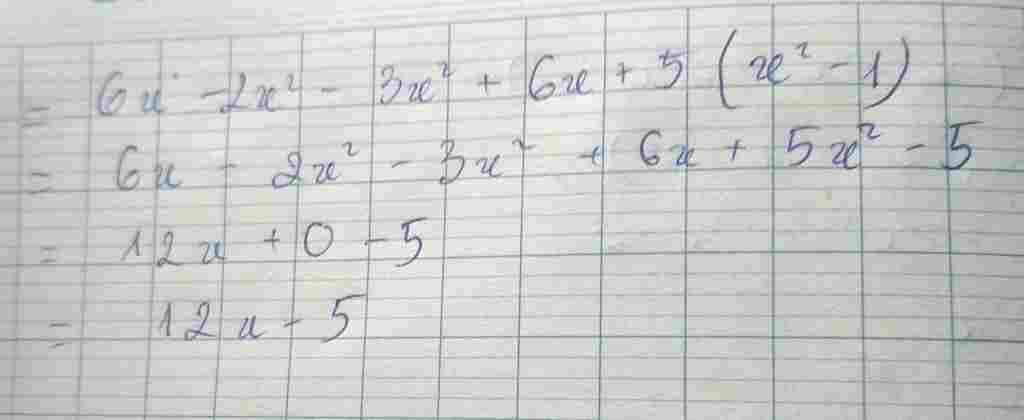 = 6x - 2x² - 3x² + 6x + 5 (x² - 1)
= 6x - 2x² - 3x² + 6x + 5x² - 5
= 12x + 0 - 5
= 12x - 5